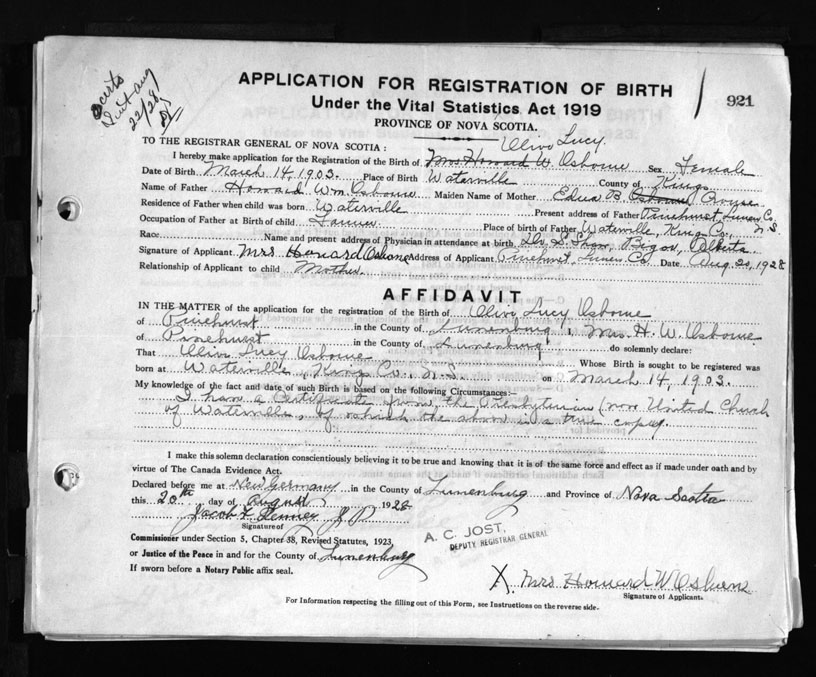 2 certs
Sent Aug
22/28
APPLICATION FOR REGISTRATION OF BIRTH
921
Under the Vital Statistics Act 1919
PROVINCE OF NOVA SCOTIA.
Olive Lucy
TO THE REGISTRAR GENERAL OF NOVA SCOTIA:
I hereby make application for the Registration of the Birth of Mrs Howard W. Osborne Sex Female
Date of Birth March 14, 1903. Place of Birth Waterville County of Kings
Name of Father Howard Wm Osborne Maiden Name of Mother Edna B. Osborne
Residence of Father when child was born Waterville Present address of Father Pinehurst, Lunen Co.
N.S.
Occupation of Father at Birth of child Farmer Place of birth of Father Waterville, Kings Co.,
Race Name and present address of Physician in attendance at birth Dr. S. Shaw, Alberta
Signature of Applicant Mrs Howard Osborne Address of Applicant Pinehurst, Lunen Co. Date Aug. 20, 1928
Relationship of Applicant to child Mother
AFFIDAVIT
IN THE MATTER of the application for the registration of the Birth of Olive Lucy Osborne
of Pinehurst in the County of Lunenburg, Mrs. H. W. Osborne
of Pinehurst in the County of Lunenburg do solemnly declare:
That Olive Lucy Osborne Whose Birth is sought to be registered was
born at Waterville, Kings Co., N.S. on March 14, 1903.
My knowledge of the fact and date of such Birth is based on the following Circumstances:—
I have a Certificate from the Presbyterian (now United Church
of Waterville, of which the above is a true copy.
I make this solemn declaration conscientiously believing it to be true and knowing that it is of the same force and effect as if made under oath and by
virtue of The Canada Evidence Act.
Declared before me at New Germany in the County of Lunenburg and Province of Nova Scotia
this 20th day of August 1928
Jacob J. P.
Signature of
A. C. JOST,
DEPUTY REGISTRAR GENERAL
Commissioner under Section 5, Chapter 38, Revised Statutes, 1923,
or Justice of the Peace in and for the County of Lunenburg
If sworn before a Notary Public affix seal.
X Mrs Howard W Osborne
Signature of Applicant.
For Information respecting the filling out of this Form, see Instructions on the reverse side.